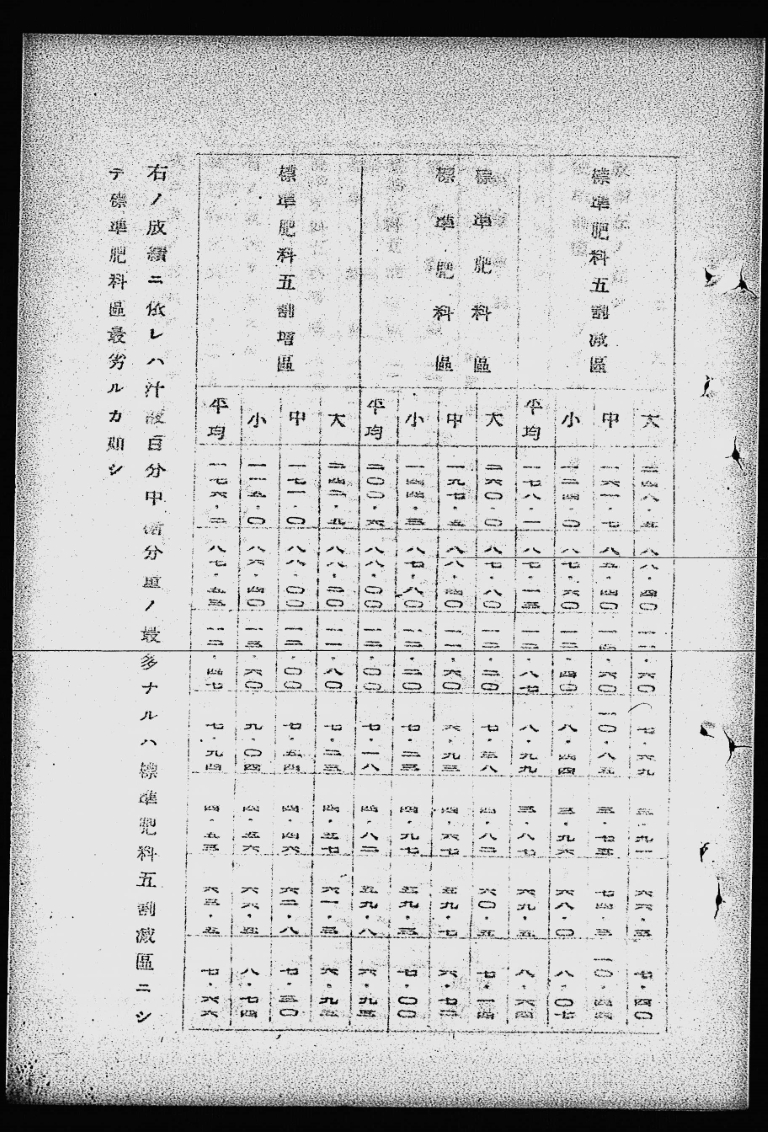 標準肥料五割減區
大 二四八・五 八八・四〇 一一・六〇 七・六九 三・九一 六六・三 七・四〇
中 一六一・七 八五・四〇 一四・六〇 一〇・八五 三・七五 七四・三 一〇・四四
小 一二四・〇 八七・六〇 一二・四〇 八・四四 三・九六 六八・〇 八・〇七
平均 一七八・一 八七・一三 一二・八七 八・九九 三・八七 六九・五 八・六四
標準肥料區
標準肥料區
大 二六〇・〇 八七・八〇 一二・二〇 七・三八 四・八二 六〇・五 七・一四
中 一九七・五 八八・四〇 一一・六〇 六・九三 四・六七 五九・七 六・七二
小 一四四・三 八七・八〇 一二・二〇 七・二三 四・九七 五九・三 七・〇〇
平均 二〇〇・六 八八・〇〇 一二・〇〇 七・一八 四・八二 五九・八 六・九五
標準肥料五割增區
大 二四二・九 八八・二〇 一一・八〇 七・二三 四・五七 六一・三 六・九三
中 一七一・〇 八八・〇〇 一二・〇〇 七・五四 四・四六 六二・八 七・三〇
小 一一五・〇 八六・四〇 一三・六〇 九・〇四 四・五六 六六・四 八・七四
平均 一七六・三 八七・五三 一二・四七 七・九四 四・五三 六三・五 七・六六
右ノ成績ニ依レハ汁液百分中糖分量ノ最多ナルハ標準肥料五割減區ニシ
テ標準肥料區最劣ルカ如シ